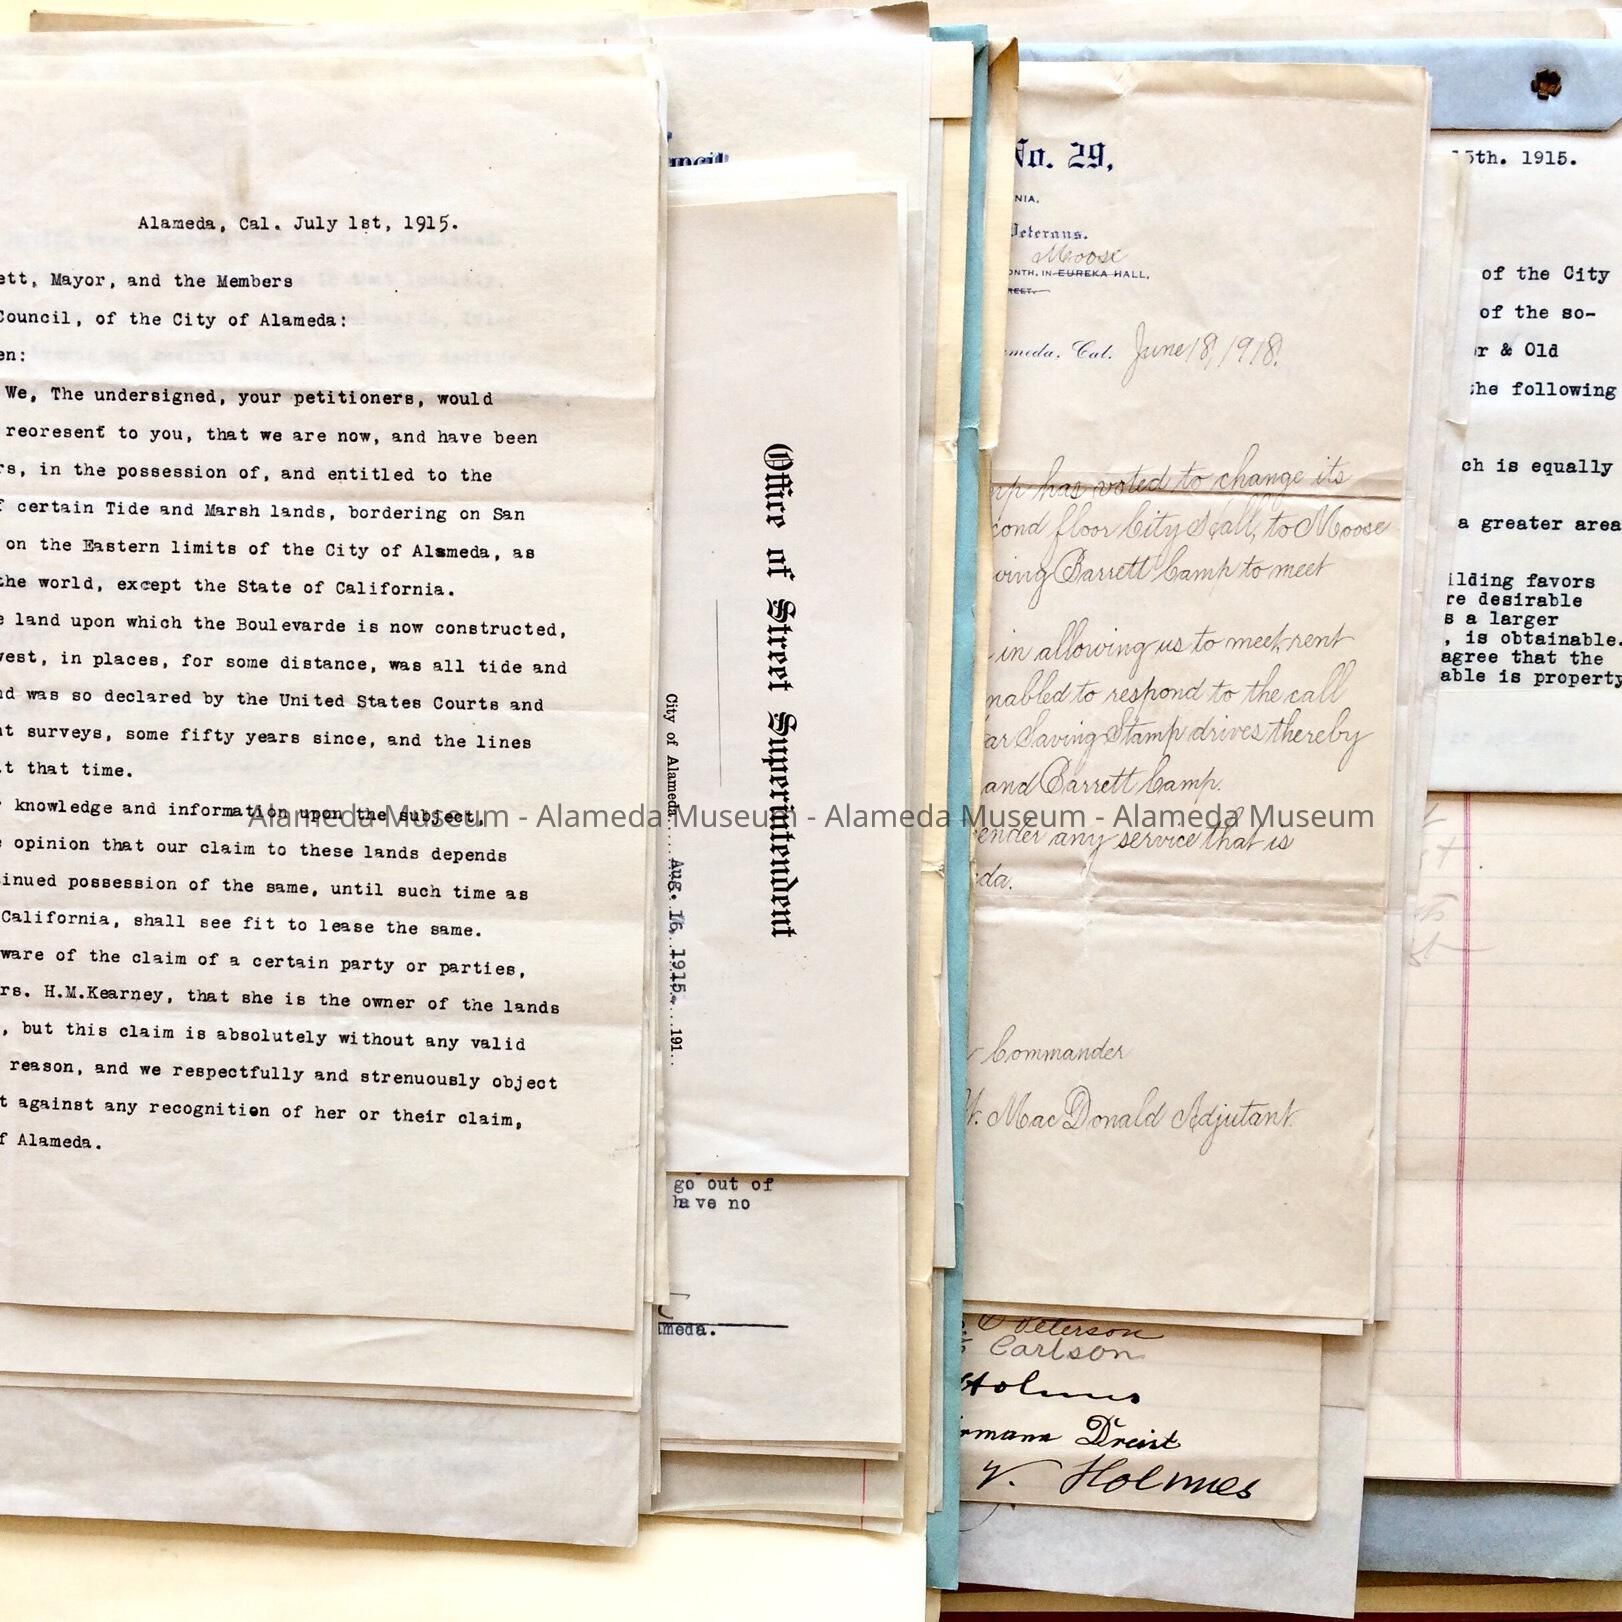 Alameda, Cal. July 1st, 1915.
ett, Mayor, and the Members
Council, of the City of Alameda:
en:
We, The undersigned, your petitioners, would
reoresent to you, that we are now, and have been
rs, in the possession of, and entitled to the
f certain Tide and Marsh lands, bordering on San
on the Eastern limits of the City of Alameda, as
the world, except the State of California.
e land upon which the Boulevarde is now constructed,
vest, in places, for some distance, was all tide and
nd was so declared by the United States Courts and
nt surveys, some fifty years since, and the lines
t that time.
r knowledge and information upon the subject,
e opinion that our claim to these lands depends
inued possession of the same, until such time as
California, shall see fit to lease the same.
ware of the claim of a certain party or parties,
rs. H.M.Kearney, that she is the owner of the lands
, but this claim is absolutely without any valid
reason, and we respectfully and strenuously object
t against any recognition of her or their claim,
f Alameda.
Office of Street Superintendent
City of Alameda..... Aug. 16, 1915....191..
go out of
have no
ameda.
No. 29,
NIA.
Veterans.
Moose
ONTH, IN EUREKA HALL,
REET.
meda, Cal. June 18, 1918.
mp has voted to change its
cond floor City Hall, to Moose
ving Barrett Camp to meet
in allowing us to meet, rent
nabled to respond to the call
ar Saving Stamp drives thereby
and Barrett Camp.
ender any service that is
da.
Commander
MacDonald Adjutant.
Peterson
Carlson
Holmes
rmann Dreist
V. Holmes
15th. 1915.
of the City
of the so-
r & Old
the following
ch is equally
a greater area
ilding favors
re desirable
s a larger
, is obtainable.
agree that the
able is property
Alameda Museum - Alameda Museum - Alameda Museum - Alameda Museum